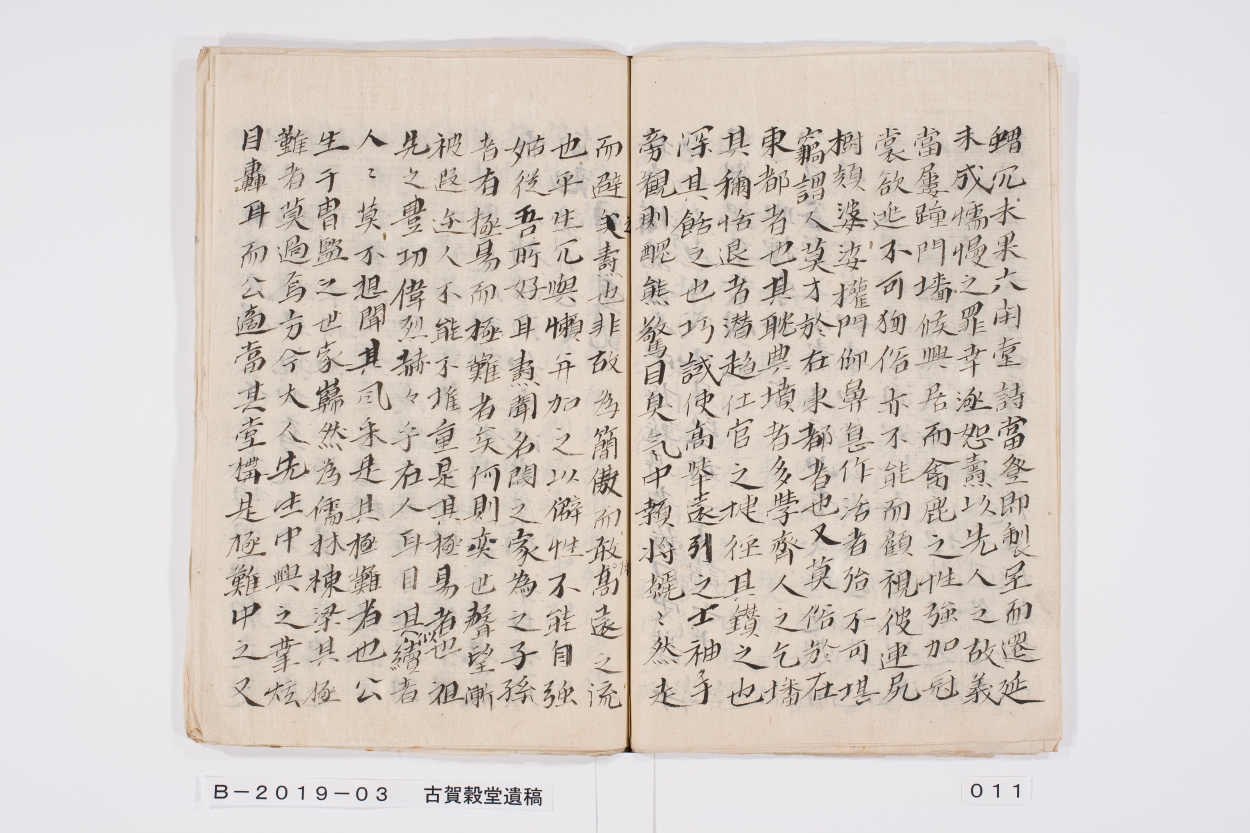 冗未果六閑堂詩當登即製呈而遷延
未成懦慢之罪幸逐恕燾以先人之故義
當屢踵門墻候興居而禽鹿之性強加冠
裳欲逃不可狥俗亦不能而顧視彼連尻
樹頬婆娑權門仰鼻息作活者殆不可堪
竊謂人莫才於在東都者也又莫俗於在
東都者也其耽典墳者多學齊人之乞墦
其稱恬退者潜趨仕官之捷徑其鑚之也
深其餂之也巧誠使高擧遠引之士袖手
旁觀則醜態驚目臭氣中顙將蹝〻然走
而避矣燾也非故為簡傲而敢高遠之流
也平生冗與懶并加之以僻性不能自強
姑從吾所好耳燾聞名閥之家為之子孫
者有極易而極難者矣何則奕世聲望漸
被遐迩人不能不推重是其極易者也祖
先之豊功偉烈赫々乎在人耳目其所以續者
人〻莫不想聞其風采是其極難者也公
生于冑監之世家巋然為儒林棟梁其極
難者莫過焉方今大人先生中興之業炫
目轟耳而公適當其堂構是極難中之又
B－2019－03 古賀穀堂遺稿
011